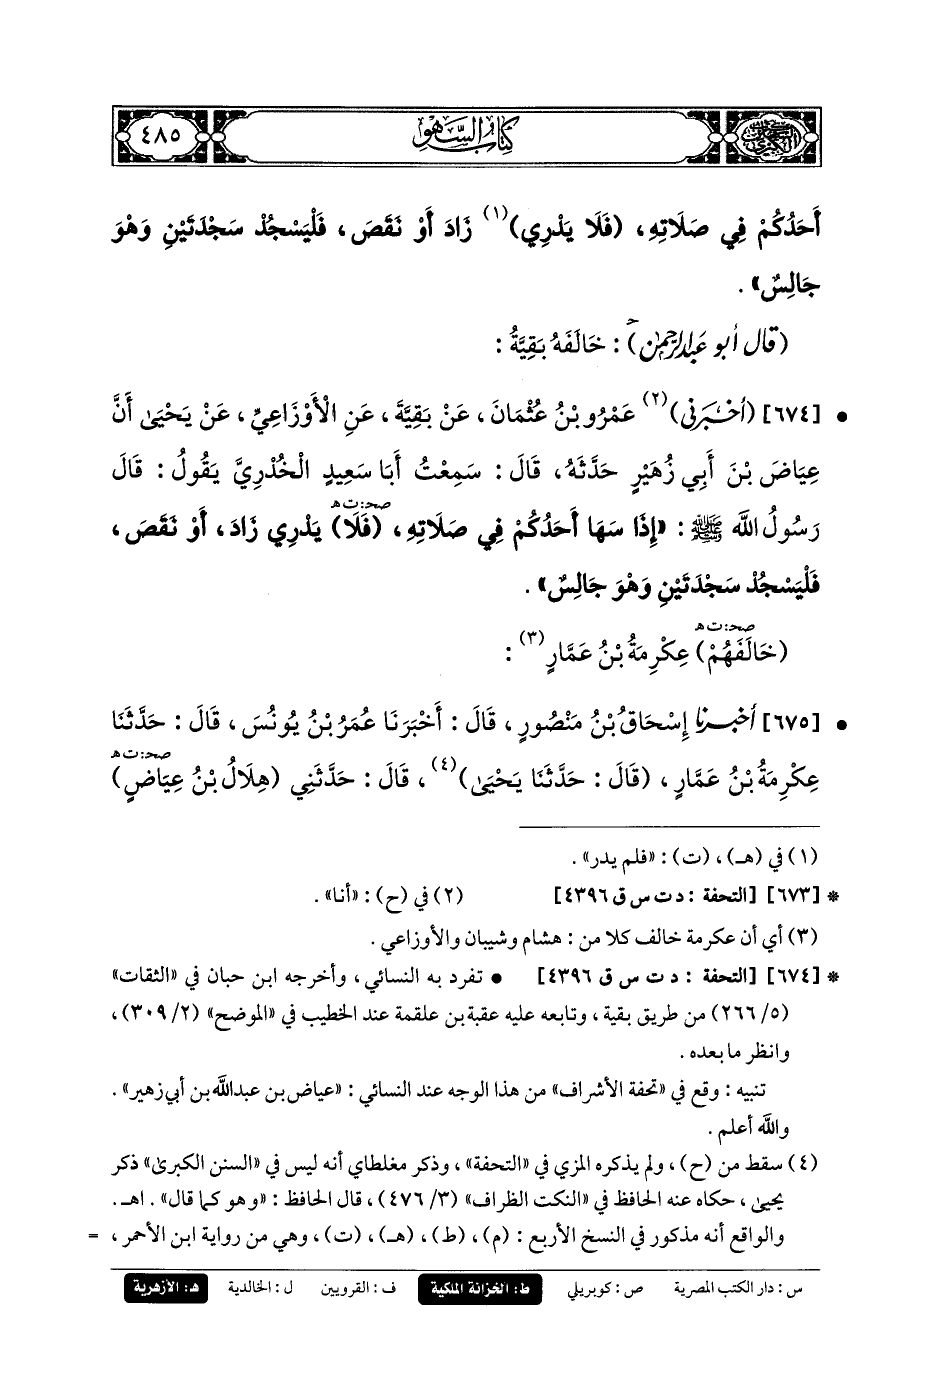 كتاب السهو
٤٨٥
أَحَدُكُمْ فِي صَلَاتِهِ، (فَلَا يَدْرِي)(١) زَادَ أَوْ نَقَصَ، فَلْيَسْجُدْ سَجْدَتَيْنِ وَهْوَ
جَالِسٌ» .
(قال أبو عبد الرحمن)ح : خَالَفَهُ بَقِيَّةُ :
• [٦٧٤] (أَخْبَرَنِي)(٢) عَمْرُو بْنُ عُثْمَانَ، عَنْ بَقِيَّةَ، عَنِ الْأَوْزَاعِيِّ، عَنْ يَحْيَى أَنَّ
عِيَاضَ بْنَ أَبِي زُهَيْرٍ حَدَّثَهُ، قَالَ: سَمِعْتُ أَبَا سَعِيدٍ الْخُدْرِيَّ يَقُولُ: قَالَ
صحـ: ت هـ
رَسُولُ اللَّه ﷺ: «إِذَا سَهَا أَحَدُكُمْ فِي صَلَاتِهِ، (فَلَا) يَدْرِي زَادَ، أَوْ نَقَصَ،
فَلْيَسْجُدْ سَجْدَتَيْنِ وَهْوَ جَالِسٌ» .
صحـ: ت هـ
(خَالَفَهُمْ) عِكْرِمَةُ بْنُ عَمَّارٍ(٣) :
• [٦٧٥] أخبرنا إِسْحَاقُ بْنُ مَنْصُورٍ، قَالَ: أَخْبَرَنَا عُمَرُ بْنُ يُونُسَ، قَالَ: حَدَّثَنَا
صحـ: ت هـ
عِكْرِمَةُ بْنُ عَمَّارٍ، (قَالَ: حَدَّثَنَا يَحْيَى)(٤)، قَالَ: حَدَّثَنِي (هِلَالُ بْنُ عِيَاضٍ)
(١) في (هـ)، (ت): «فلم يدر» .
* [٦٧٣] [التحفة : د ت س ق ٤٣٩٦] (٢) في (ح): «أنا» .
(٣) أي أن عكرمة خالف كلا من : هشام وشيبان والأوزاعي .
* [٦٧٤] [التحفة : د ت س ق ٤٣٩٦] • تفرد به النسائي، وأخرجه ابن حبان في «الثقات»
(٥/ ٢٦٦) من طريق بقية، وتابعه عليه عقبة بن علقمة عند الخطيب في «الموضح» (٢/ ٣٠٩)،
وانظر ما بعده .
تنبيه : وقع في «تحفة الأشراف» من هذا الوجه عند النسائي : «عياض بن عبدالله بن أبي زهير» .
والله أعلم .
(٤) سقط من (ح)، ولم يذكره المزي في «التحفة»، وذكر مغلطاي أنه ليس في «السنن الكبرى» ذكر
يحيى، حكاه عنه الحافظ في «النكت الظراف» (٣/ ٤٧٦)، قال الحافظ : «وهو كما قال» . اهـ.
والواقع أنه مذكور في النسخ الأربع : (م)، (ط)، (هـ)، (ت)، وهي من رواية ابن الأحمر، =
س : دار الكتب المصرية ص : كوبريلي ط : الخزانة الملكية ف : القرويين ل : الخالدية هـ : الأزهرية